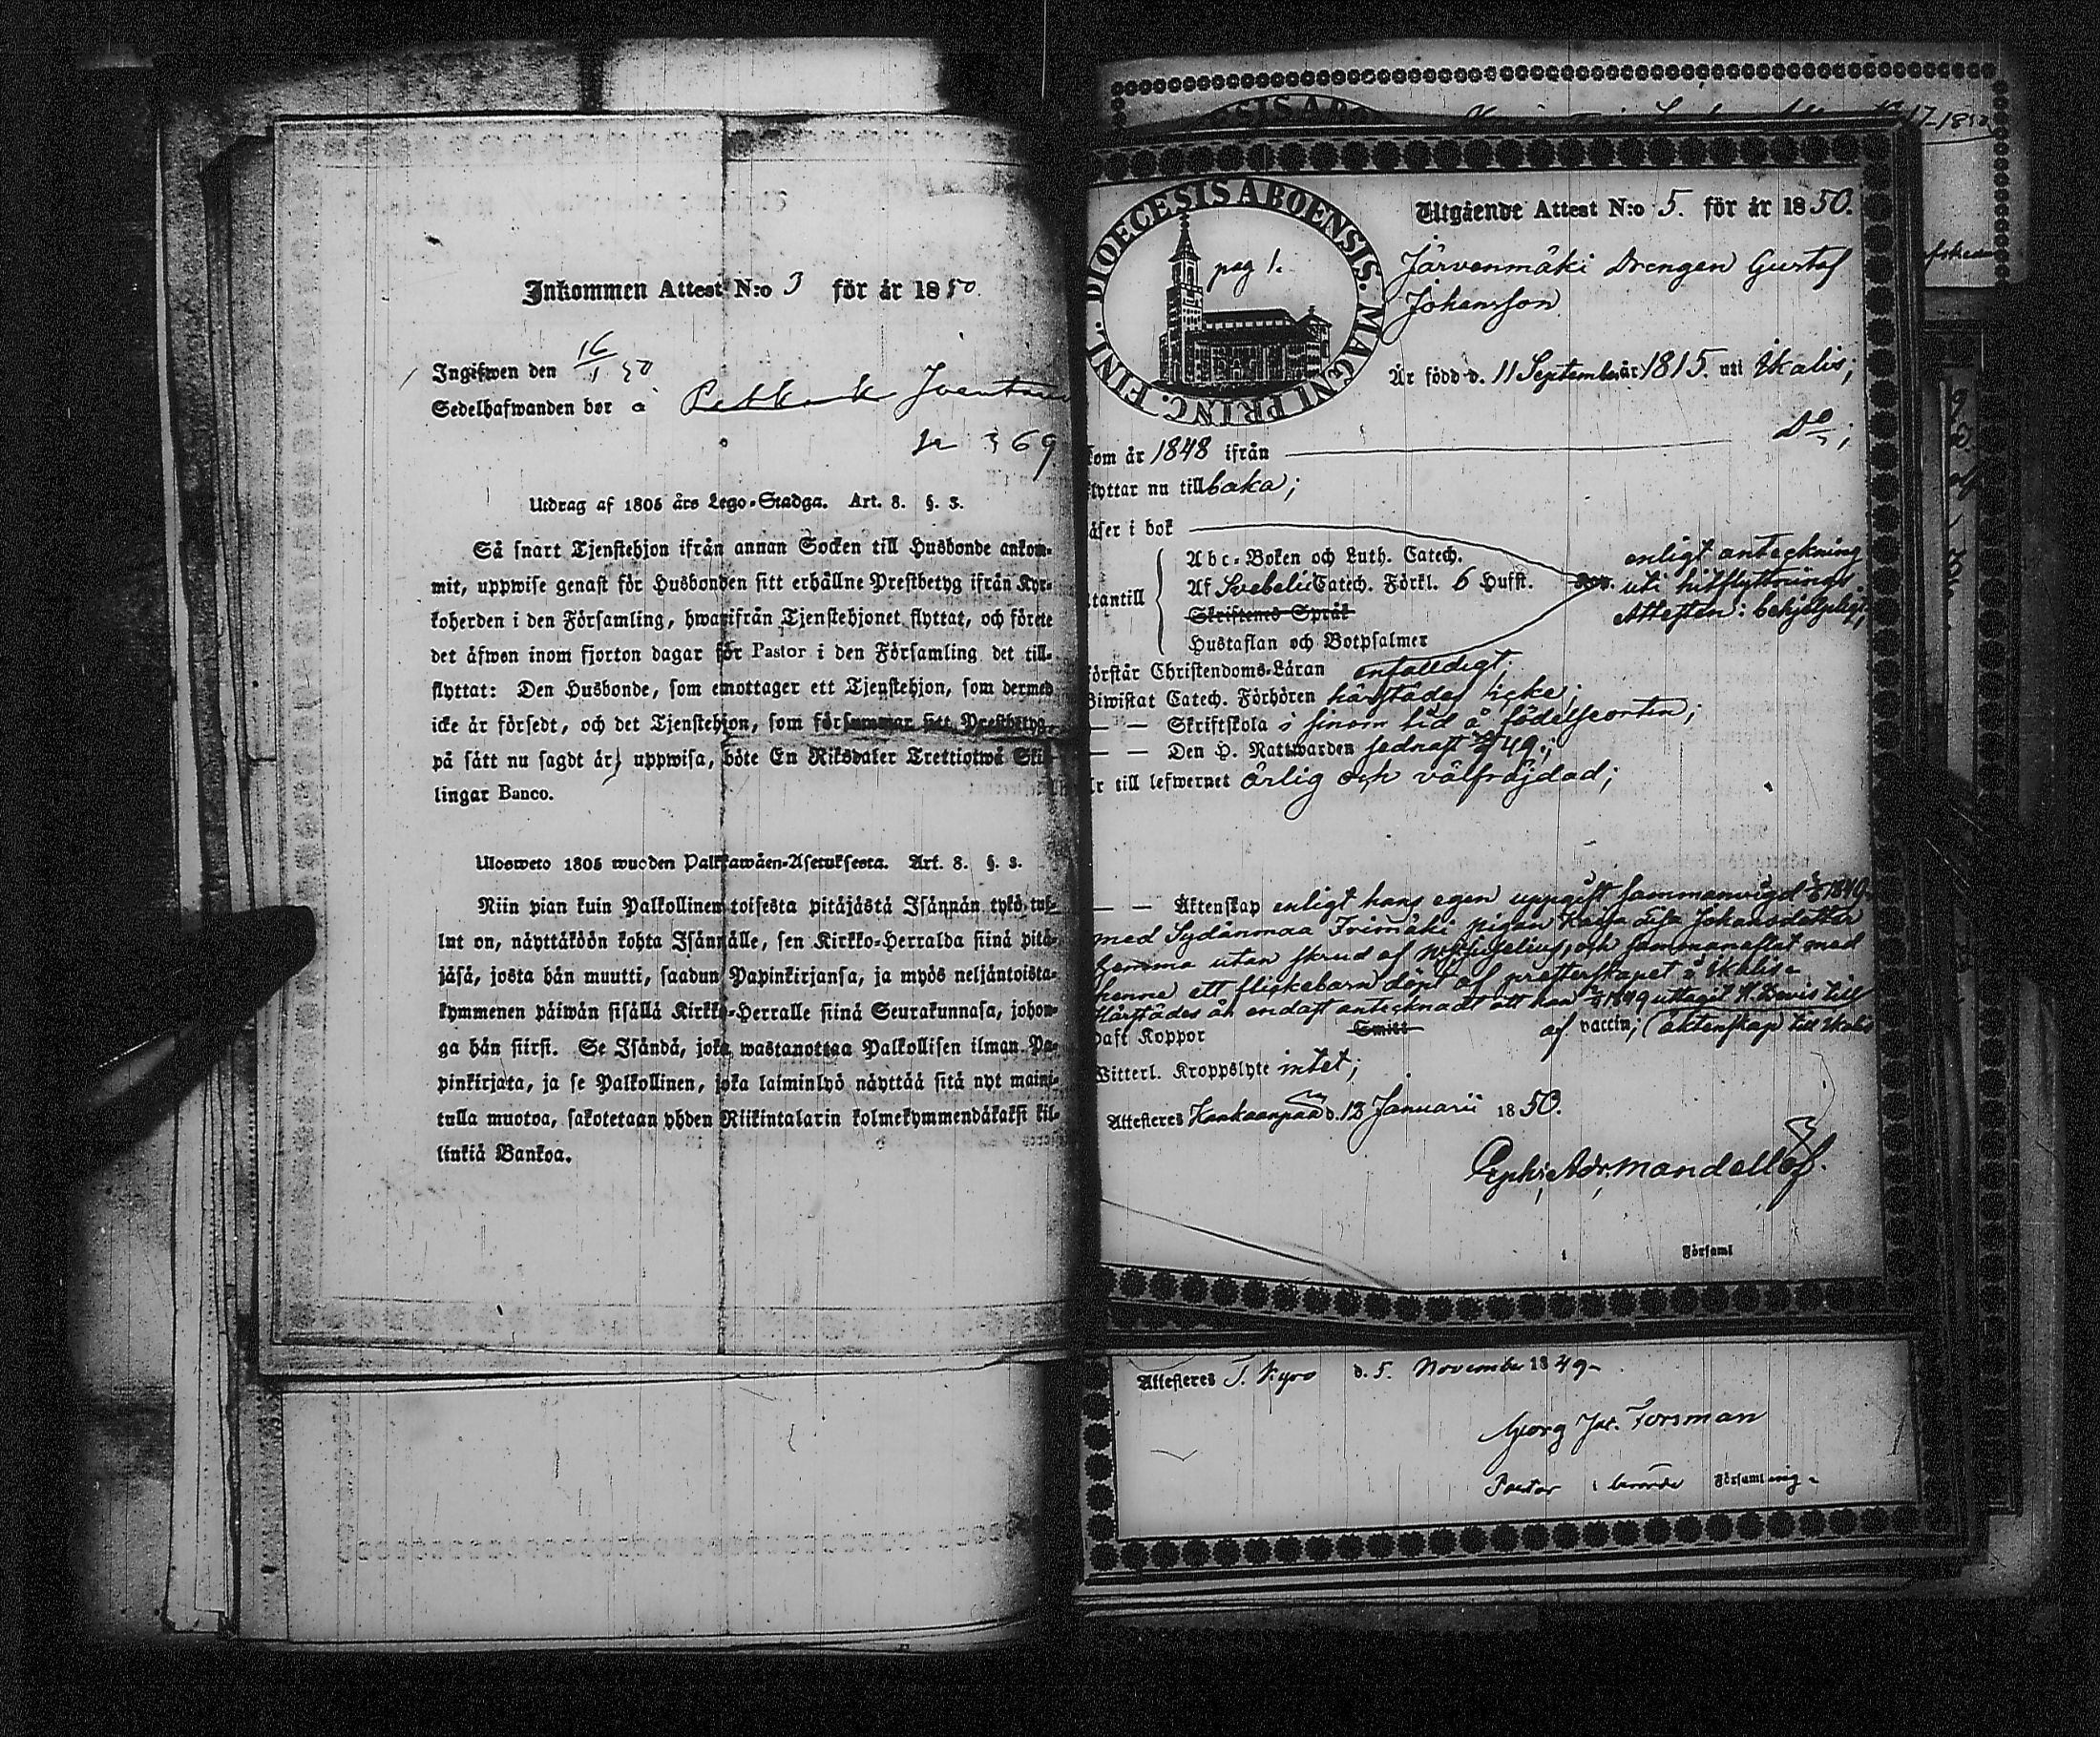 Inkommen Attest N:o 3 för år 1850.
Ingifwen den 16/1 50
Sedelhafwanden bor å
Sn 369
Utdrag af 1805 års Lego-Stadga. Art. 8. §. 3.
Så snart Tjenstehjon ifrån annan Socken till Husbonde ankom-
mit, uppwise genast för Husbonden sitt erhållne Prestbetyg ifrån Kyr-
koherden i den Församling, hwarifrån Tjenstehjonet flyttat, och förete
det äfwen inom fjorton dagar för Pastor i den Församling det till-
flyttat: Den Husbonde, som emottager ett Tjenstehjon, som dermed
icke är försedt, och det Tjenstehjon, som försummar sitt Prestbetyg,
på sätt nu sagdt är, uppwisa, böte En Riksdaler Trettiotwå Skil-
lingar Banco.
Ulosweto 1805 wuoden Palkkawäen-Asetuksesta. Art. 8. §. 3.
Niin pian kuin Palkollinen toisesta pitäjästä Isännän tykö tul-
lut on, näyttäköön kohta Isännälle, sen Kirkko-Herralda siinä pitä-
jäsä, josta hän muutti, saadun Papinkirjansa, ja myös neljäntoista-
kymmenen päiwän sisällä Kirkko-Herralle siinä Seurakunnasa, johon-
ga hän siirsi. Se Isändä, joka wastanottaa Palkollisen ilman Pa-
pinkirjata, ja se Palkollinen, joka laiminlyö näyttää sitä nyt maini-
tulla muotoa, sakotetaan yhden Riikintalarin kolmekymmendäkaksi kil-
linkiä Bankoa.
DIOECESIS ABOENSIS. MAGNI PRINC. FINL.
pag 1.
Utgående Attest N:o 5. för år 1850.
Järvenmäki Drengen Gustaf
Johansson
Är född d. 11 September år 1815. uti Ikalis;
kom år 1848 ifrån Do;
flyttar nu tillbaka;
läser i bok
Abc-Boken och Luth. Catech.
Af Svebelii Catech. Förkl. 6 Hufst.
utantill
Skriftenes Språk
Hustaflan och Botpsalmer
enligt anteckning
uti hitflyttnings
Attesten: behjelpligt;
förstår Christendoms-Läran enfaldigt;
Biwistat Catech. Förhören härstädes icke;
— — Skriftskola i sinom tid å födelseorten;
— — Den H. Nattwarden sednast 49;
är till lefwernet ärlig och välfräjdad;
— — Äktenskap enligt hans egen uppgift sammanvigd 1849
med Sydänmaa Iivimäki pigan Kaisa Lisa Johansdotter
hemma utan skrud af och sammanaflat med
henne ett flickebarn döpt af presterskapet å Ikalis.
Härstädes är endast antecknadt att han 1849 uttagit H. Bevis till
haft Koppor Smitt af vaccin; (äktenskap) till Ikalis
Witterl. Kroppslyte intet;
Attesteres Kankaanpää d. 13 Januarii 1850.
Ad: Mandellöf.
i Församl
Attesteres T. Kyro d. 5. November 1849
Georg Jac. Forsman
Pastor i Församling